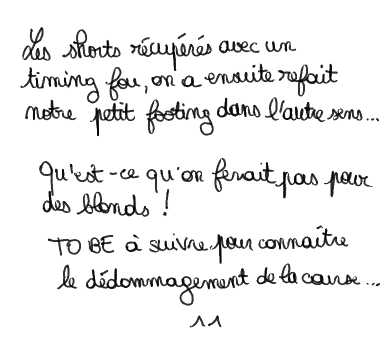 Les shorts récupérés avec un
timing fou, on a ensuite refait
notre petit footing dans l'autre sens...
Qu'est-ce qu'on ferait pas pour
des blonds !
TO BE à suivre pour connaître
le dédommagement de la course...
^^